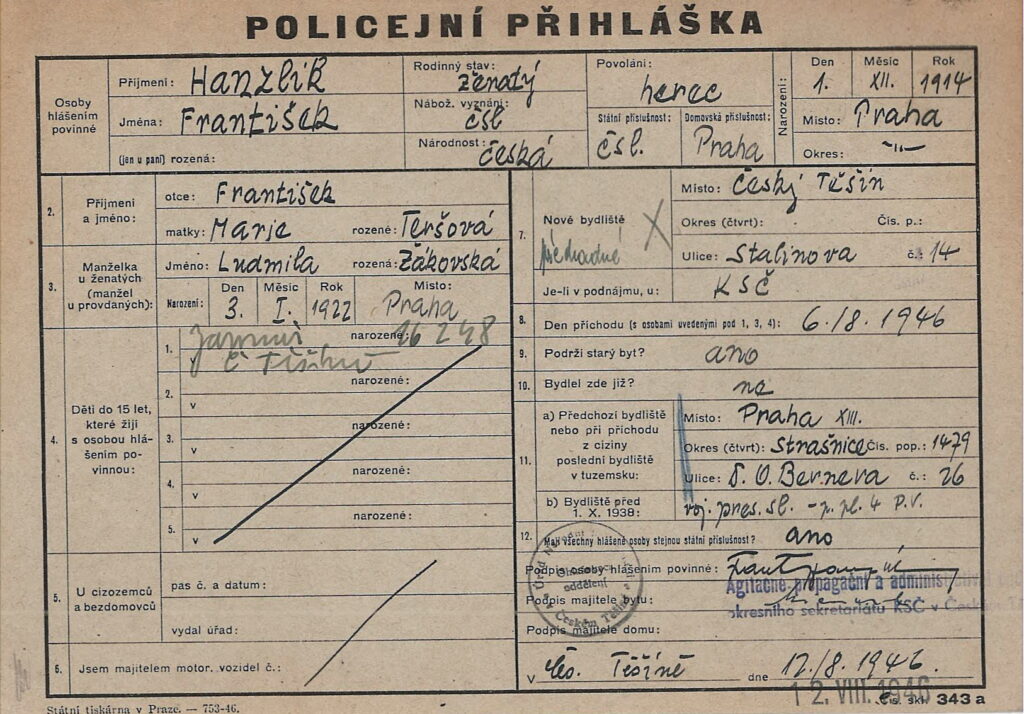 POLICEJNÍ PŘIHLÁŠKA
Osoby hlášením povinné
Příjmení: Hanzlík
Jména: František
(jen u paní) rozená:
Rodinný stav: ženatý
Nábož. vyznání: čsl
Národnost: česká
Povolání: herec
Státní příslušnost: čsl.
Domovská příslušnost: Praha
Narození:
Den 1. Měsíc XII. Rok 1914
Místo: Praha
Okres: -"-
2. Příjmení a jméno:
otce: František
matky: Marie rozené: Teršová
3. Manželka u ženatých (manžel u provdaných):
Jméno: Ludmila rozená: Žákovská
Narození: Den 3. Měsíc I. Rok 1922 Místo: Praha
4. Děti do 15 let, které žijí s osobou hlášením povinnou:
1. Jaromír narozené: 16 2 48
v Č Těšíně
2. narozené:
v
3. narozené:
v
4. narozené:
v
5. narozené:
v
5. U cizozemců a bezdomovců
pas č. a datum:
vydal úřad:
6. Jsem majitelem motor. vozidel č.:
7. Nové bydliště
přechodné
Místo: Český Těšín
Okres (čtvrt): Čís. p.:
Ulice: Stalinova č.: 14
Je-li v podnájmu, u: KSČ
8. Den příchodu (s osobami uvedenými pod 1, 3, 4): 6./8. 1946
9. Podrží starý byt? ano
10. Bydlel zde již? ne
11. a) Předchozí bydliště nebo při příchodu z ciziny poslední bydliště v tuzemsku:
Místo: Praha XIII.
Okres (čtvrt): Strašnice Čís. pop.: 1479
Ulice: D. O. Bernera č.: 26
b) Bydliště před 1. X. 1938: voj. pres. sl. - p. pl. 4 P.V.
12. Mají všechny hlášené osoby stejnou státní příslušnost? ano
Podpis osoby hlášením povinné:
Podpis majitele bytu:
Agitačně propagační a administ
okresního sekretariátu KSČ v Česk
Podpis majitele domu:
oddělení
v Českém Těšíně
v Čes. Těšíně dne 12./8. 1946.
12. VIII. 1946
Státní tiskárna v Praze. — 753-46.
Čís. skl. 343 a